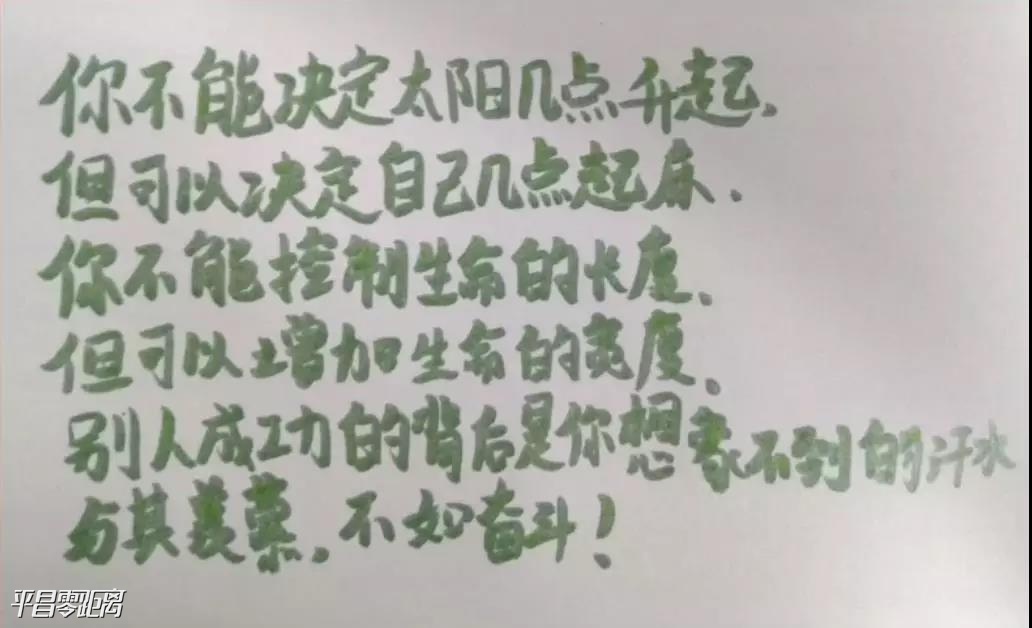 你不能决定太阳几点升起，
但可以决定自己几点起床．
你不能控制生命的长度、
但可以增加生命的宽度、
别人成功的背后是你想象不到的汗水
与其羡慕，不如奋斗！
平昌零距离